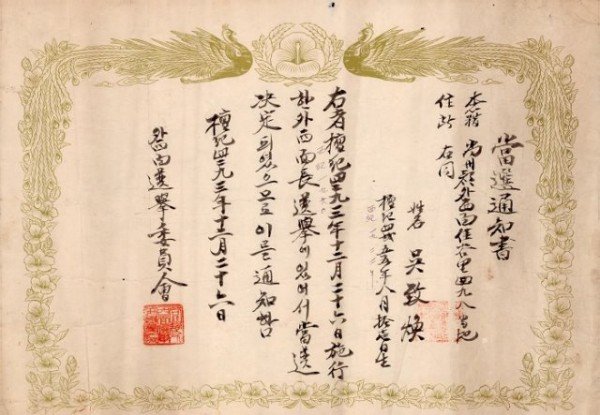 當選通知書
本籍 尙州郡外西面佳谷里四九八番地
住所 右同
姓名 吳致煥
檀紀四二五五年八月拾日生
右者檀紀四二九三年十二月二十六日施行
한外西面長選擧에있어서當選
決定되었으므로이를通知함
檀紀四二九三年十二月二十六日
外西面選擧委員會